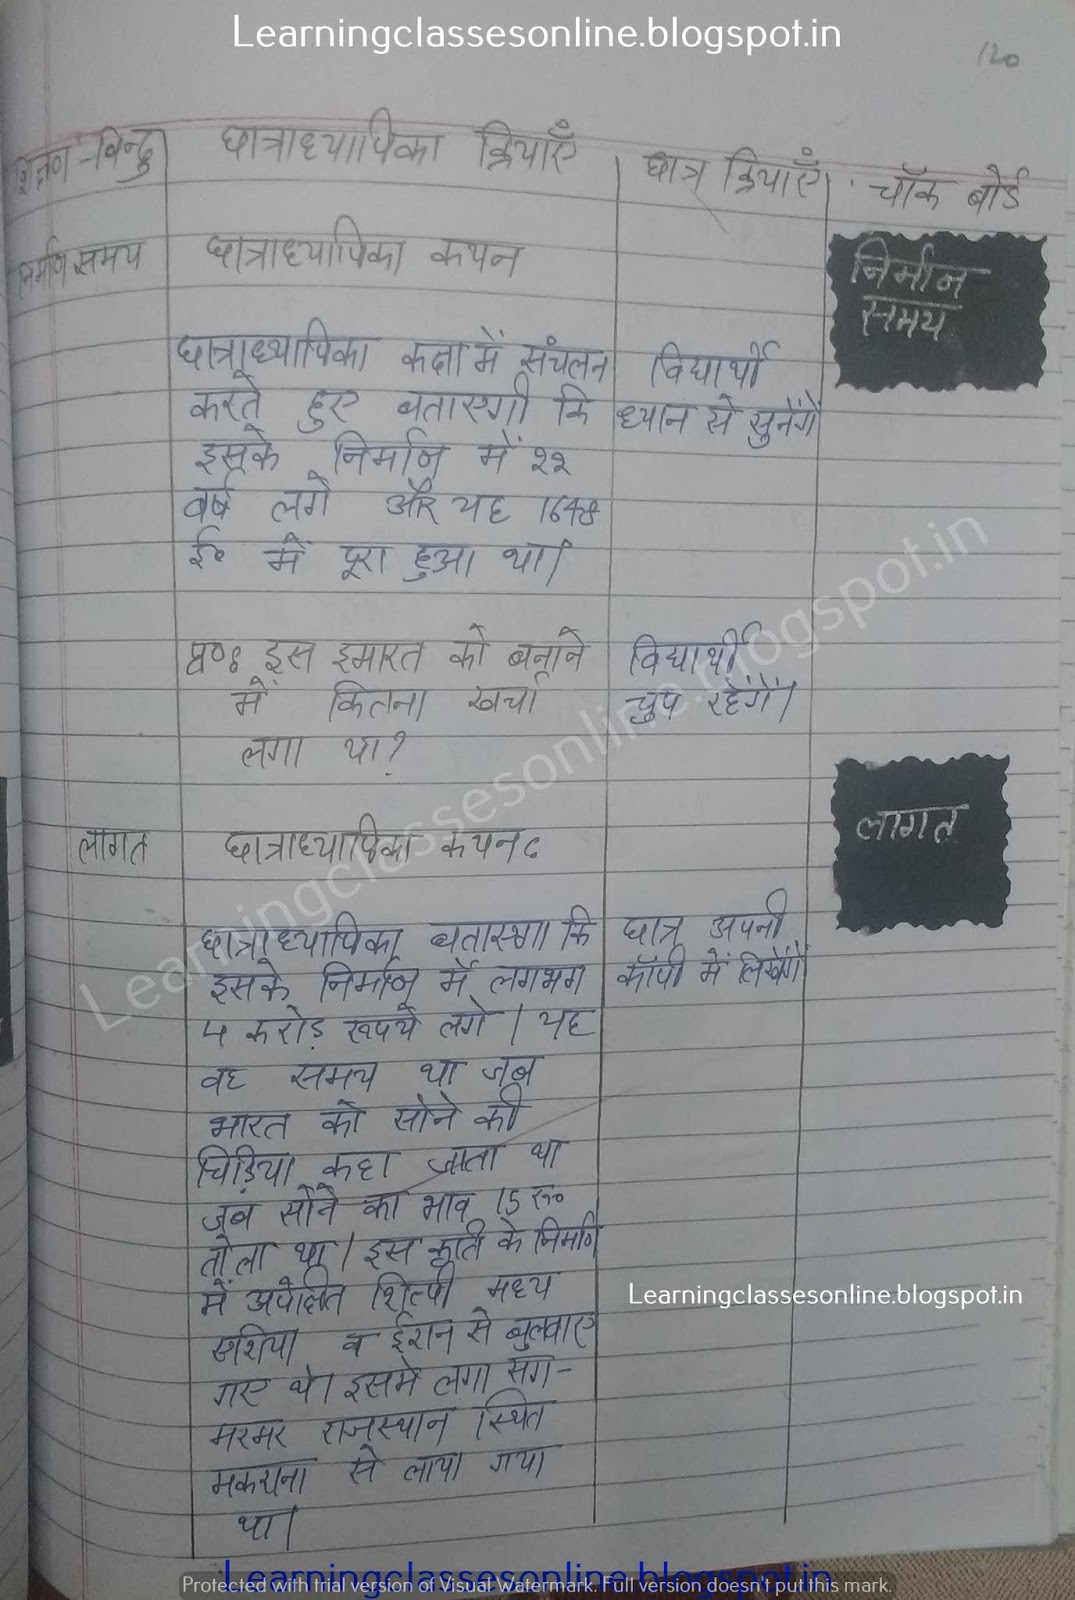 Learningclassesonline.blogspot.in
120
शिक्षण-बिन्दु छात्राध्यापिका क्रियाएँ छात्र क्रियाएँ चॉक बोर्ड
निर्माण समय छात्राध्यापिका कथन
निर्मान
समय
छात्राध्यापिका कक्षा में संचलन विद्यार्थी
करते हुए बताएगी कि ध्यान से सुनेंगें
इसके निर्मान में २२
वर्ष लगे और यह 1648
ई० में पूरा हुआ था।
प्र०ः इस इमारत को बनाने विद्यार्थी
में कितना खर्चा चुप रहेंगें।
लगा था?
लागत छात्राध्यापिका कथनः
लागत
छात्राध्यापिका बताएगी कि छात्र अपनी
इसके निर्मान में लगभग कॉपी में लिखेंगें
4 करोड़ रूपये लगे। यह
वह समय था जब
भारत को सोने की
चिड़िया कहा जाता था
जब सोने का भाव 15 रू०
तोला था। इस कृति के निर्माण
में अपेक्षित शिल्पी मध्य
एशिया व ईरान से बुलवाए
गए थे। इसमे लगा संग-
मरमर राजस्थान स्थित
मकराना से लाया गया
था।
Learningclassesonline.blogspot.in
Learningclassesonline.blogspot.in
Learningclassesonline.blogspot.in
Protected with trial version of Visual Watermark. Full version doesn't put this mark.